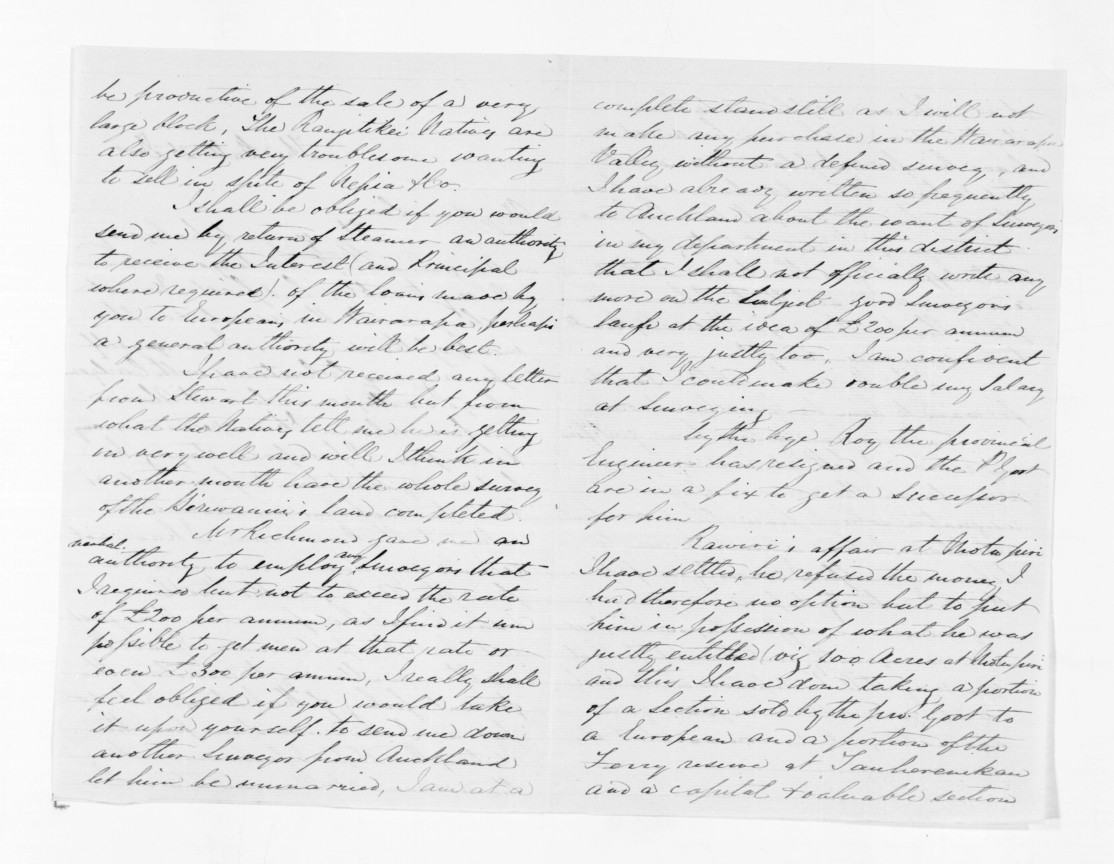 be productive of the sale of a very
large block, The Rangitikei Natives are
also getting very troublesome wanting
to sell in spite of Nepia & Co.
I shall be obliged if you would
send me by return of Steamer an authority
to receive the Interest (and Principal
where required). of the loans made by
you to Europeans in Wairarapa perhaps
a general authority will be best.
I have not received any letter
from Stewart this month but from
what the Natives tell me he is getting
on very well and will I think in
another month have the whole survey
of the land completed.
Mr Richmond gave me an
verbal.
authority to employ any Surveyors that
I required but not to exceed the rate
of £200 per annum, as I find it im
possible to get men at that rate or
even £300 per annum, I really shall
feel obliged if you would take
it upon yourself. to send me down
another Surveyor from Auckland
let him be unmarried, I am at a
complete standstill as I will not
make any purchase in the Wairarapa
Valley without a defined survey, and
I have already written so frequently
to Auckland about the want of Surveyors
in my department in this district
that I shall not officially write any
more on the Subject good Surveyors
laugh at the idea of £200 per annum
and very justly too, I am confident
that I could make double my Salary
at Surveying
by the bye Roy the provincial
Engineer has resigned and the P Govt
are in a fix to get a Successor
for him
Rawiri's affair at Motupiri
I have settled, he refused the money I
had therefore no option but to put
him in possession of what he was
justly entitled (viz 100 Acres at Motupiri
and this I have done taking a portion
of a Section sold by the pro. Govt to
a European and a portion of the
Ferry reserve at Tauherenikau
and a capital & valuable section